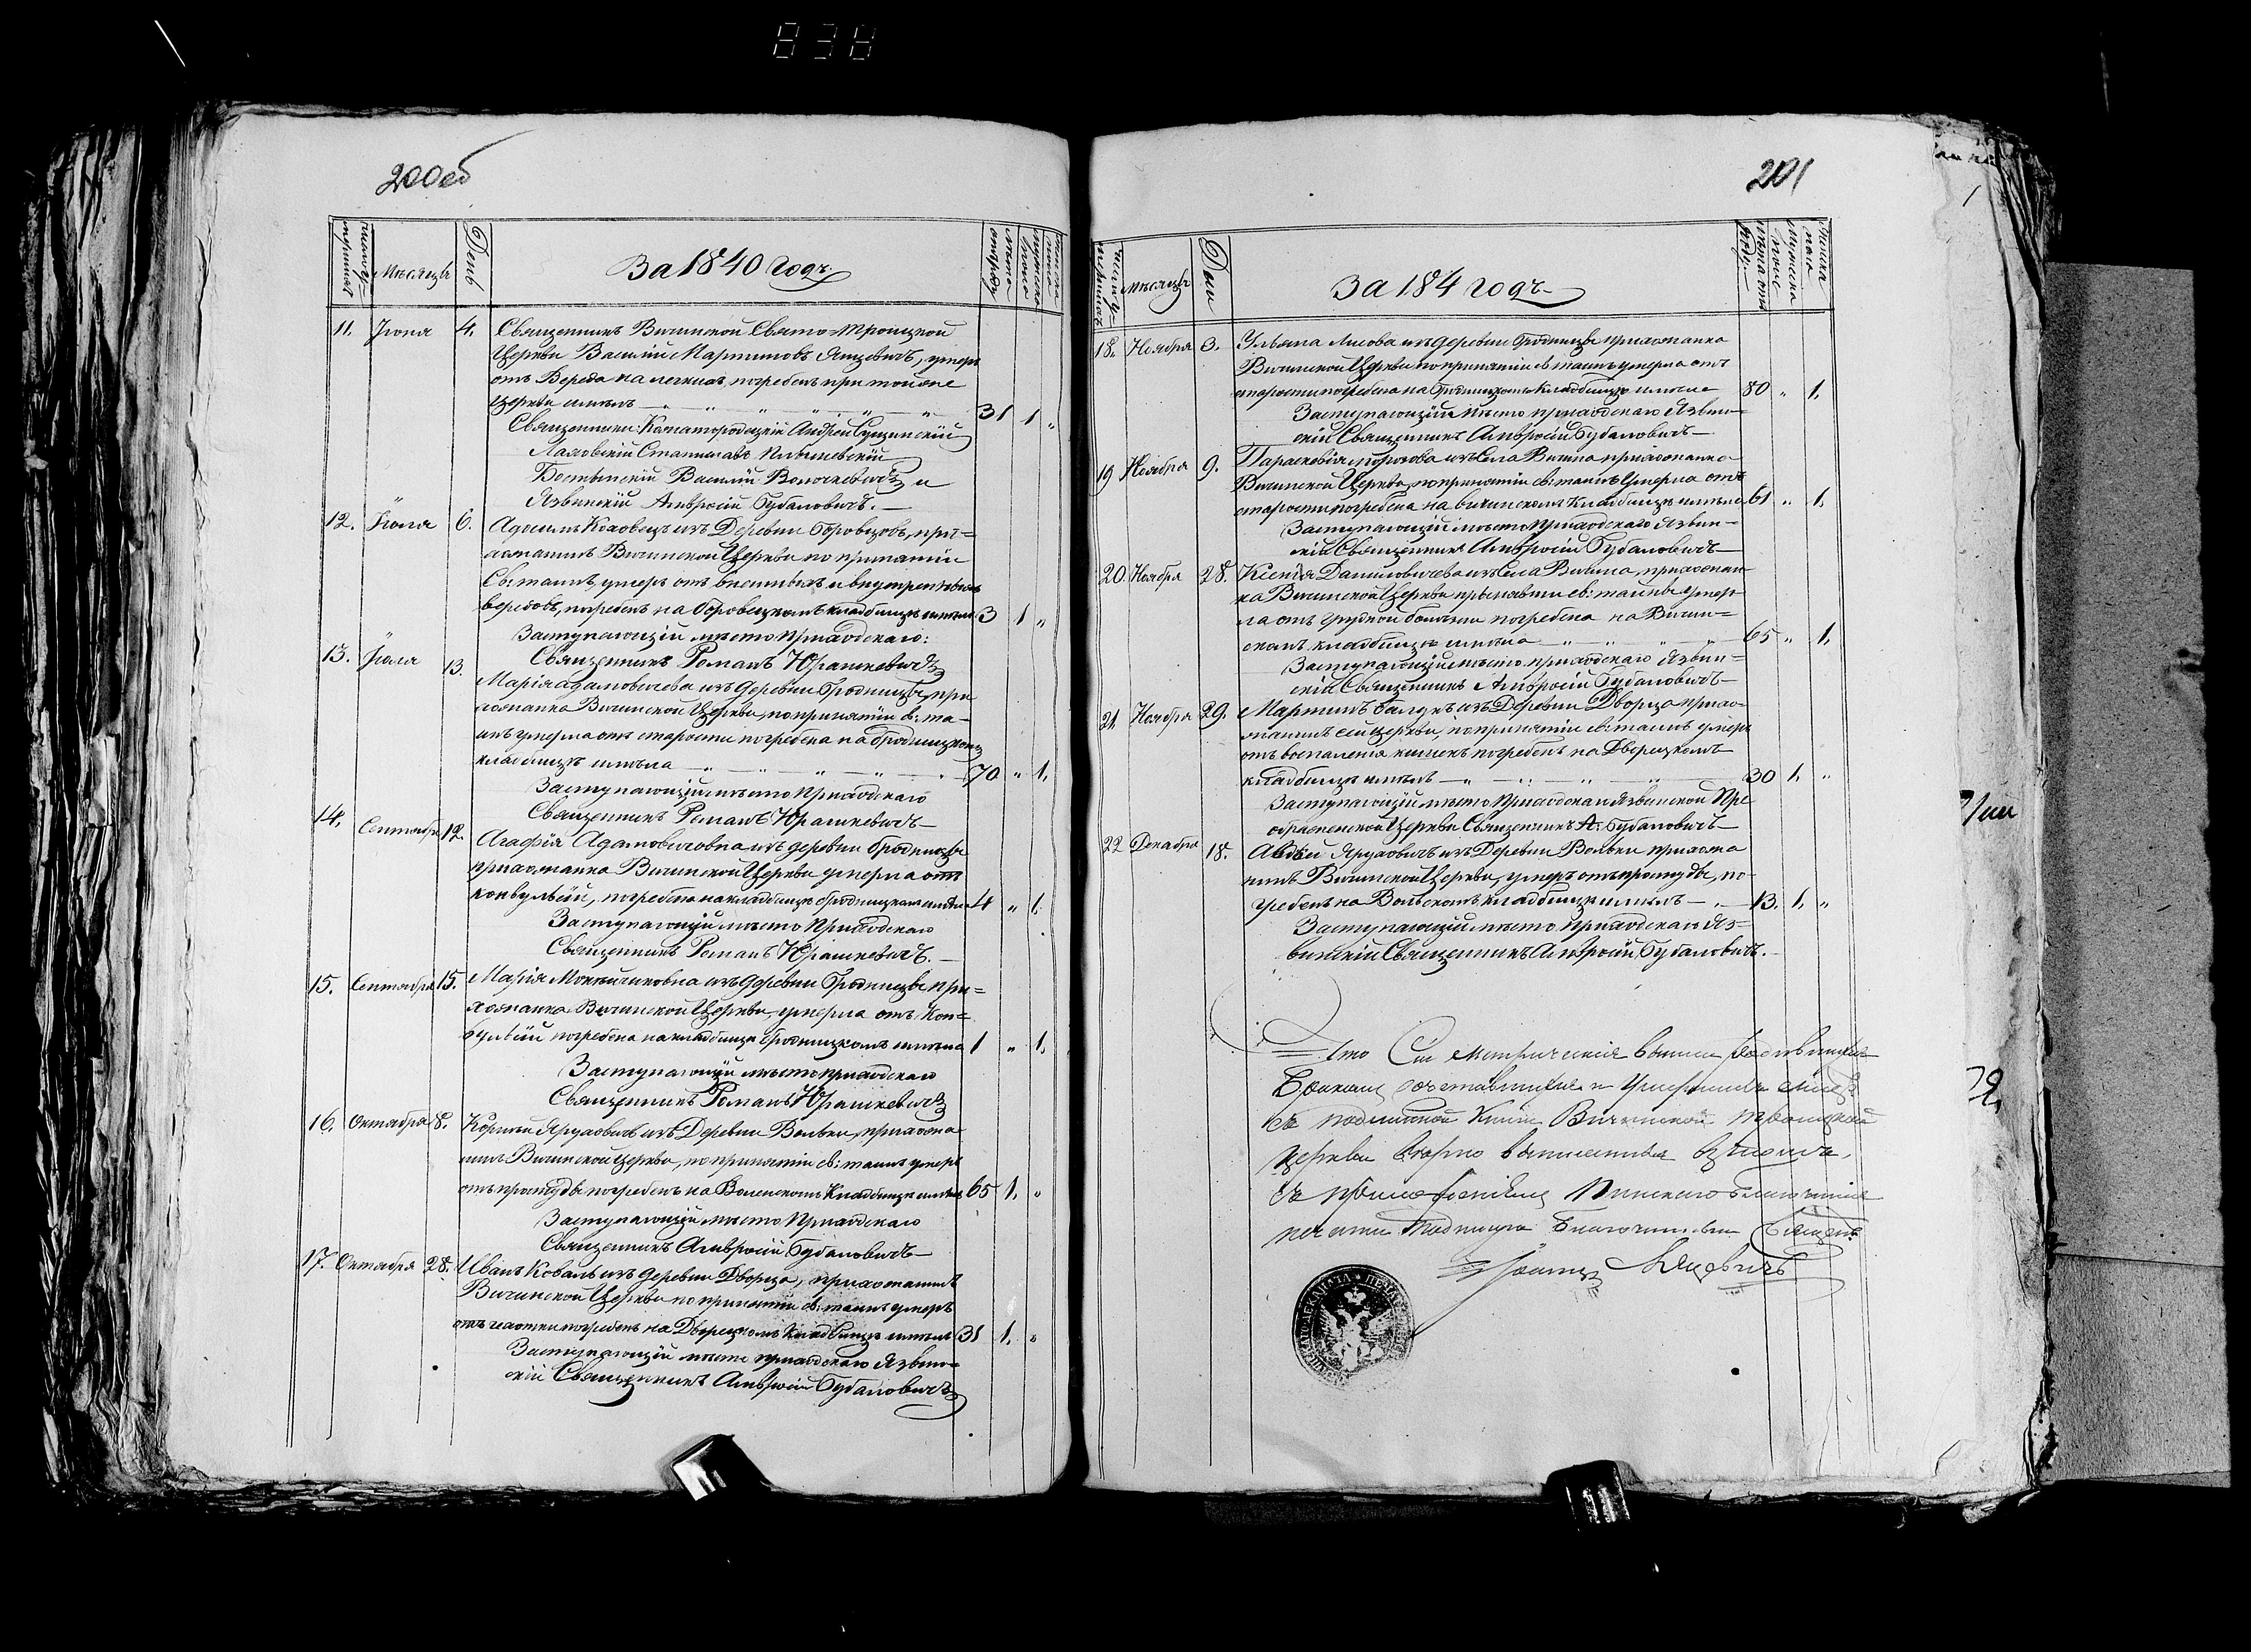 838
200об
Число умершихъ
Мѣсяцъ
День
За 1840 годъ
11. Іюня 4. Священникъ Вичинской Свято=Троицкой
Церкви Василій Мартиновъ Яцевичъ, умеръ
отъ Вереда на легкихъ, погребенъ при той же
Церкви имѣлъ 31 1 „
Священники: Андрей Сущинскій
Лаховскій Станиславъ
Василій и
Язвинскій Амвросій Бубановичъ.
12. Іюня 6. изъ Деревни Боровцовъ, при=
хожанинъ Вичинской Церкви по принятіи
Св: таинъ, умеръ отъ внѣшнихъ и внутреннихъ
вередовъ, погребенъ на Боровецкомъ кладбищѣ имѣлъ 3 1 „
Заступающій мѣсто Приходскаго:
Священникъ Романъ Юрашкевичъ
13. Іюля 13. Марія Адамовичева изъ деревни Бродницы, при
хожанка Вичинской Церкви, по принятіи св: та=
инъ умерла отъ старости погребена на Бродницкомъ
кладбищѣ имѣла 70 „ 1.
Заступающій мѣсто Приходскаго
Священникъ Романъ Юрашкевичъ
14. Сентября 12. Агафія Адамовичовна изъ деревни Бродницы
прихожанка Вичинской Церкви умерла отъ
конвульсій, погребена на кладбищѣ Бродницкомъ имѣла 4 „ 1.
Заступающій мѣсто Приходскаго
Священникъ Романъ Юрашкевичъ.
15. Сентября 15. Марія изъ деревни Бродницы при=
хожанка Вичинской Церкви, умерла отъ Кон=
вульсій погребена на кладбищѣ Бродницкомъ имѣла 1 „ 1.
Заступающій мѣсто приходскаго
Священникъ Романъ Юрашкевичъ
16. Октября 8. Корнѣй Яруховичъ изъ Деревни Вольки, прихожа
нинъ Вичинской Церкви, по принятіи св: таинъ умеръ
отъ простуды погребенъ на кладбищѣ имѣлъ 65 1. „
Заступающій мѣсто Приходскаго
Священникъ Амвросій Бубановичъ
17. Октября 28. Иванъ Коваль изъ деревни Дворца, прихожанинъ
Вичинской Церкви по принятіи св: таинъ умеръ
отъ чахотки погребенъ на Дворецкомъ Кладбищѣ имѣлъ 31 1. „
Заступающій мѣсто приходскаго Язвин=
скій Священникъ Амвросій Бубановичъ
201
Мѣсяцъ
Дни
За 184 годъ
18. Ноября 3. Ульяна Лисова изъ деревни Бродницы прихожанка
Вичинской Церкви по принятіи св: таинъ умерла отъ
старости погребена на Бродницкомъ Кладбищѣ имѣла 80 „ 1.
Заступающій мѣсто приходскаго Язвин=
скій Священникъ Амвросій Бубановичъ
19 Ноября 9. Параскевія изъ Села Вичина прихожанка
Вичинской Церкви, по принятіи св: таинъ Умерла отъ
старости погребена на Вичинскомъ Кладбищѣ имѣла 61 „ 1.
Заступающій мѣсто Приходскаго Язвин=
скій Священникъ Амвросій Бубановичъ
20 Ноября 28. Ксенія Даниловичева изъ Села Вичина, прихожан
ка Вичинской Церкви принявши св: тайны умер
ла отъ грудной болѣзни погребена на Вичин=
скомъ кладбищѣ имѣла 65 „ 1.
Заступающій мѣсто приходскаго Язвин=
скій Священникъ Амвросій Бубановичъ
21. Ноября 29. Мартинъ изъ Деревни Дворца прихо=
жанинъ сей церкви, по принятіи св: таинъ умеръ
отъ воспаленія кишекъ погребенъ на Дворецкомъ
кладбищѣ имѣлъ 30 1. „
Заступающій мѣсто Приходскаго Язвинской Пре
ображенской Церкви Священникъ А: Бубановичъ
22 Декабря 18. Авдѣй Яруховичъ изъ Деревни Вольки прихожа
нинъ Вичинской Церкви, умеръ отъ простуды, по
гребенъ на Вольскомъ кладбищѣ имѣлъ 13. 1. „
Заступающій мѣсто Приходскаго Яз=
винскій Священникъ Амвросій Бубановичъ.
Что Сіи метрическія выписи родившихся
Бракомъ сочетавшихся и Умершихъ
съ подлинной Книги Вичинской Троицкой
церкви вѣрно выписаны въ томъ,
съ приложеніемъ Пинскаго благочинія
печати подписуюсь Благочинный Священ:
Яцевичъ